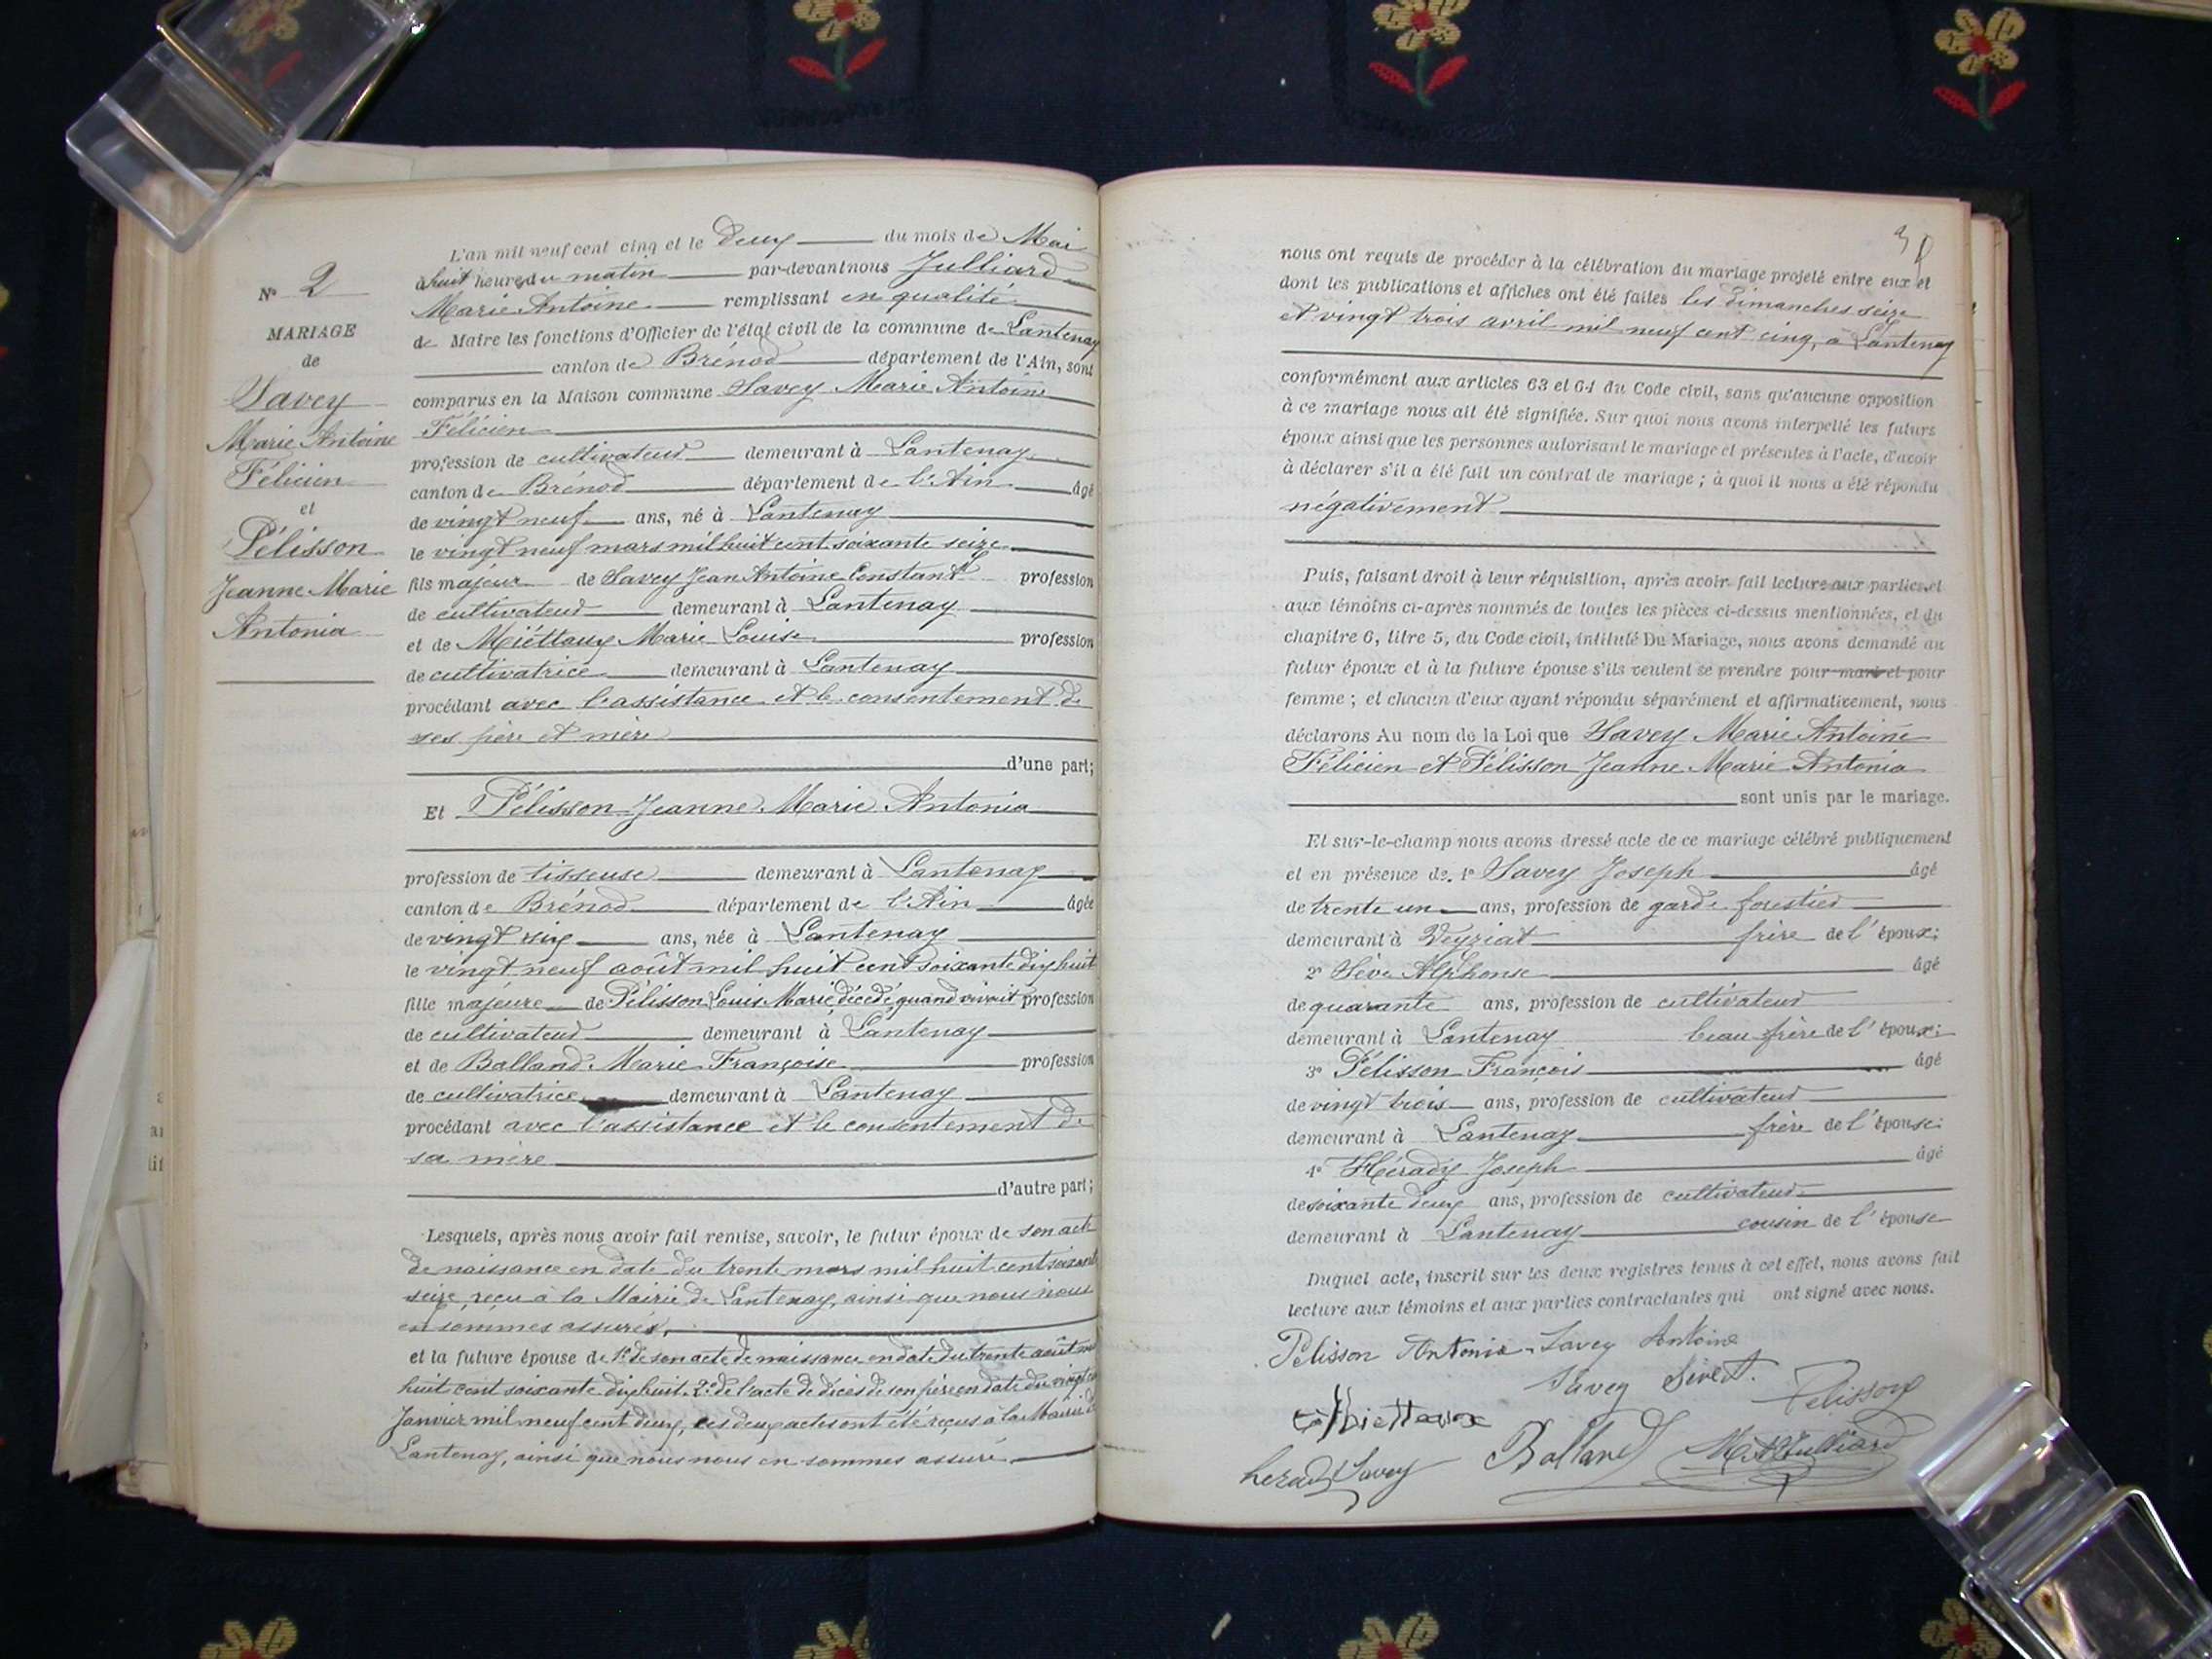 L'an mil neuf cent cinq et le deux du mois de Mai
à huit heures du matin par-devant nous Julliard
Marie Antoine remplissant en qualité
de Maire les fonctions d'Officier de l'état civil de la commune de Lantenay
canton de Brénod département de l'Ain, sont
comparus en la Maison commune Savey Marie Antoine
Félicien
profession de cultivateur demeurant à Lantenay
canton de Brénod département de l'Ain âgé
de vingt neuf ans, né à Lantenay
le vingt neuf mars mil huit cent soixante seize
fils majeur de Savey Jean Antoine Constant profession
de cultivateur demeurant à Lantenay
et de Miéttaux Marie Louise profession
de cultivatrice demeurant à Lantenay
procédant avec l'assistance et le consentement de
ses père et mère
d'une part;
Et Pélisson Jeanne Marie Antonia
profession de tisseuse demeurant à Lantenay
canton de Brénod département de l'Ain âgée
de vingt six ans, née à Lantenay
le vingt neuf août mil huit cent soixante dix huit
fille majeure de Pélisson Louis Marie, décédé, quand vivait profession
de cultivateur demeurant à Lantenay
et de Balland Marie Françoise profession
de cultivatrice demeurant à Lantenay
procédant avec l'assistance et le consentement de
sa mère
d'autre part;
Lesquels, après nous avoir fait remise, savoir, le futur époux de son acte
de naissance en date du trente mars mil huit cent soixante
seize, reçu à la Mairie de Lantenay, ainsi que nous nous
en sommes assuré,
et la future épouse de 1° de son acte de naissance en date du trente août mil
huit cent soixante dix huit. 2° de l'acte de décès de son père en date du vingt
Janvier mil neuf cent deux, ces deux actes ont été reçus à la Mairie de
Lantenay, ainsi que nous nous en sommes assuré
N° 2
MARIAGE
de
Savey
Marie Antoine
Félicien
et
Pélisson
Jeanne Marie
Antonia
nous ont requis de procéder à la célébration du mariage projeté entre eux et
dont les publications et affiches ont été faites les dimanches seize
et vingt trois avril mil neuf cent cinq, à Lantenay
conformément aux articles 63 et 64 du Code civil, sans qu'aucune opposition
à ce mariage nous ait été signifiée. Sur quoi nous avons interpellé les futurs
époux ainsi que les personnes autorisant le mariage et présentes à l'acte, d'avoir
à déclarer s'il a été fait un contrat de mariage ; à quoi il nous a été répondu
négativement
Puis, faisant droit à leur réquisition, après avoir fait lecture aux parties et
aux témoins ci-après nommés de toutes les pièces ci-dessus mentionnées, et du
chapitre 6, titre 5, du Code civil, intitulé Du Mariage, nous avons demandé au
futur époux et à la future épouse s'ils veulent se prendre pour mari et pour
femme ; et chacun d'eux ayant répondu séparément et affirmativement, nous
déclarons Au nom de la Loi que Savey Marie Antoine
Félicien et Pélisson Jeanne Marie Antonia
sont unis par le mariage.
Et sur-le-champ nous avons dressé acte de ce mariage célébré publiquement
et en présence de. 1° Savey Joseph âgé
de trente un ans, profession de garde forestier
demeurant à Veyziat frère de l'époux;
2° Sève Alphonse âgé
de quarante ans, profession de cultivateur
demeurant à Lantenay beau frère de l'époux;
3° Pélisson François âgé
de vingt trois ans, profession de cultivateur
demeurant à Lantenay frère de l'épouse;
4° Hérady Joseph âgé
de soixante deux ans, profession de cultivateur
demeurant à Lantenay cousin de l'épouse
Duquel acte, inscrit sur les deux registres tenus à cet effet, nous avons fait
lecture aux témoins et aux parties contractantes qui ont signé avec nous.
Pélisson Antonia Savey Antoine
Savey
Pelisson
Savey Balland M. A. Julliard